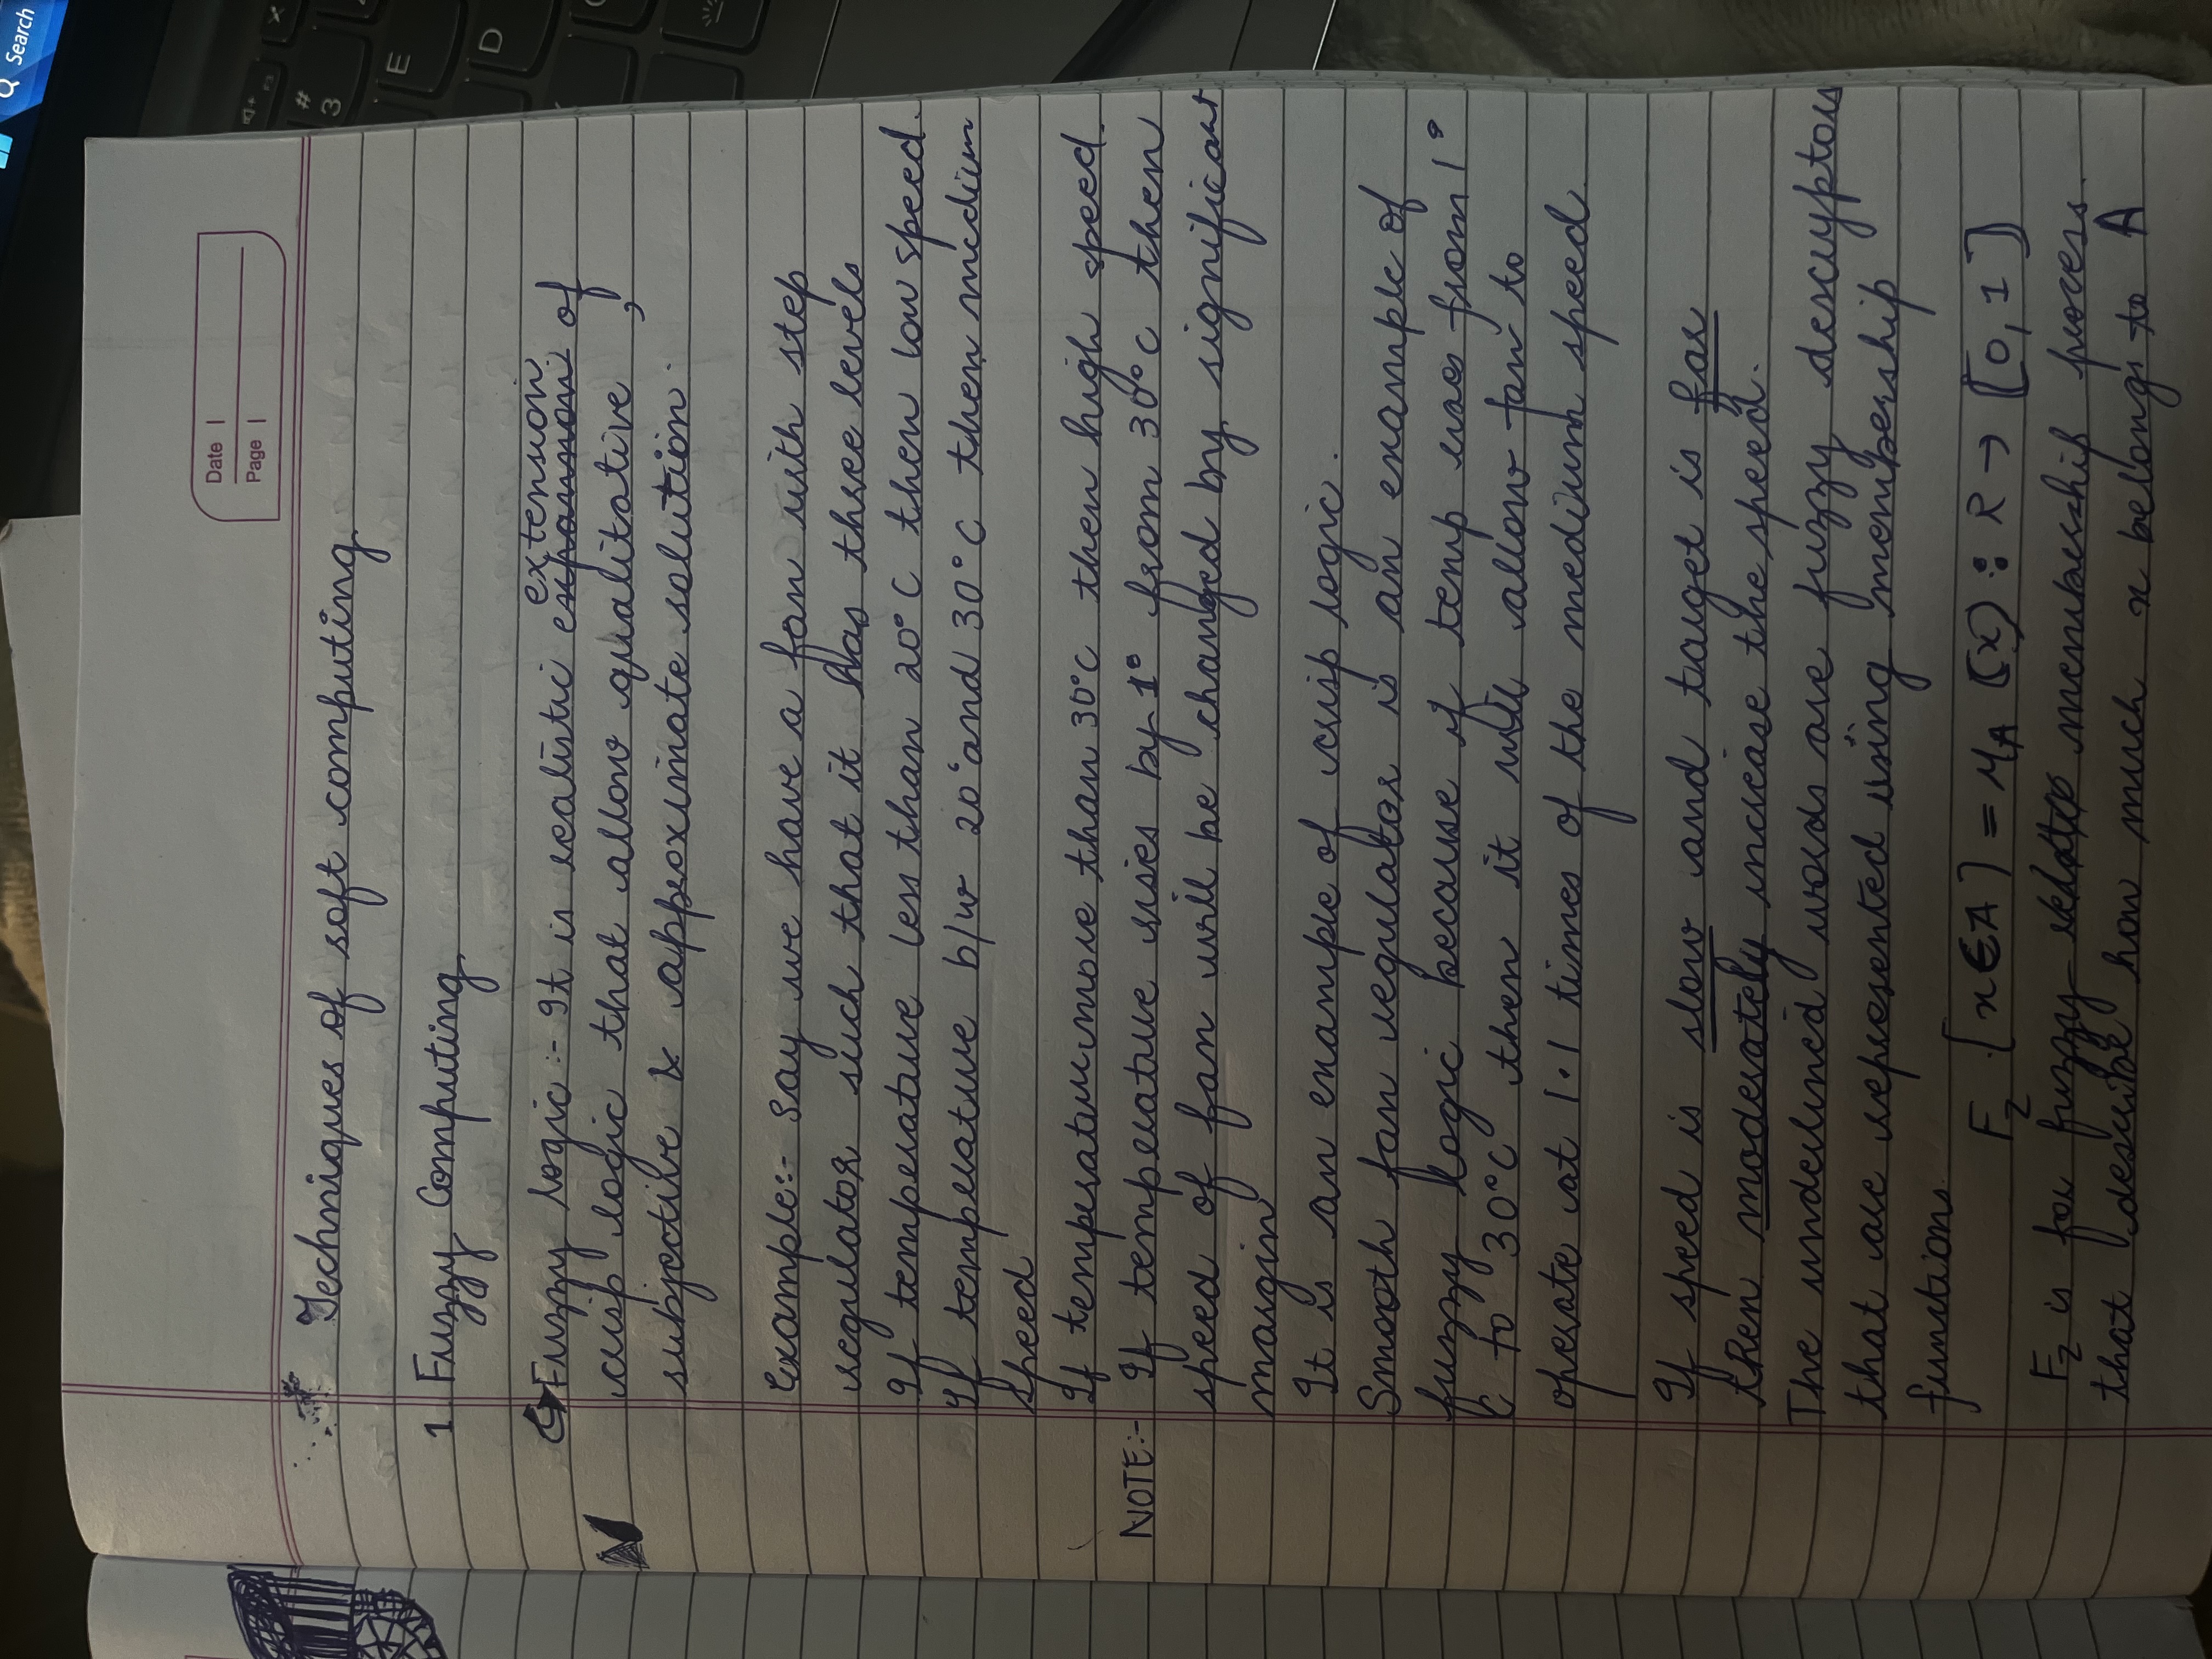 Search
Date |
Page |
# 3
E
D
Techniques of soft computing
1. Fuzzy Computing
extension
Fuzzy logic :- It is realistic expansion of
crisp logic that allow qualitative ,
subjective & approximate solution.
Example:- Say we have a fan with step
regulator such that it has three levels
If temperature less than 20°C then low speed.
If temperature b/w 20° and 30°C then medium
speed
If temperature more than 30°C then high speed.
NOTE:- If temperature rises by 1° from 30°C then
speed of fan will be changed by significant
margin
It is an example of crisp logic.
Smooth fan regulator is an example of
fuzzy logic because if temp rises from 1°
C to 30°C then it will allow fan to
operate at 1.1 times of the medium speed
If speed is slow and target is far
then moderately increase the speed.
The underlined words are fuzzy descryptors
that are represented using membership
functions
Fz [x∈A] = μA (x) : R → [0,1]
Fz is for fuzzy membership process
that describe how much x belongs to A